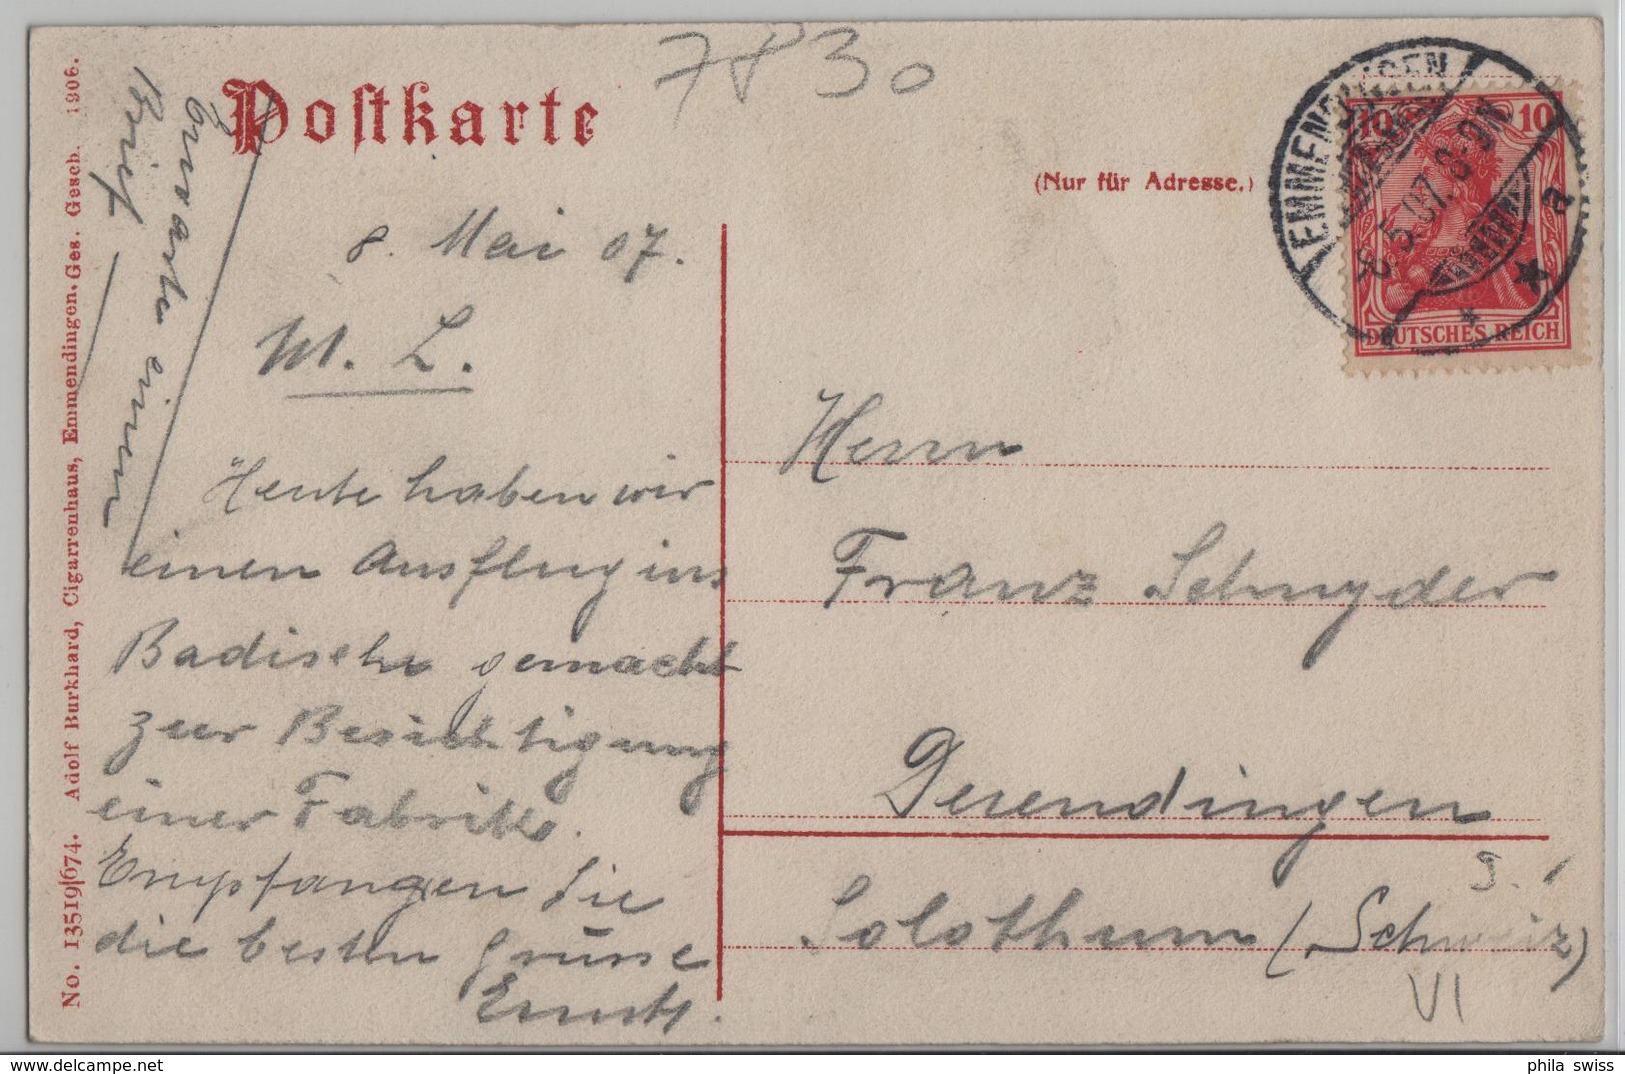 7 P 30
Postkarte
(Nur für Adresse.)
EMMENDINGEN
8.5.07. 8-9N
a
10 10
DEUTSCHES REICH
Erwarte einen
Brief
8. Mai 07.
M. L.
Heute haben wir
einen Ausflug ins
Badische gemacht
zur Besichtigung
einer Fabrik.
Empfangen Sie
die besten Grüsse
Ernst.
Herrn
Franz Schnyder
Derendingen
Solothurn (Schweiz)
VI
No. 13519/674. Adolf Burkhard, Cigarrenhaus, Emmendingen. Ges. Gesch. 1906.
phila_swiss